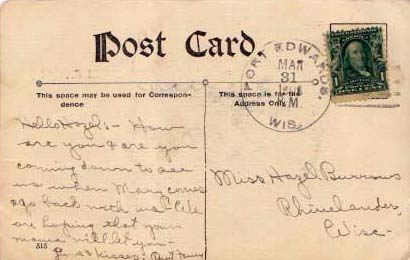 Post Card.
This space may be used for Correspondence
This space is for the Address Only.
PORT EDWARDS,
MAR
31
M.
WIS.
1
Hello Hazel:- How
are you & are you
coming down to see
us when Mary comes
ago back with us? We
are hoping that your
mama will let you-
Love & Kisses: Aunt
515
Miss Hazel Burrows
Rhinelander,
Wisc-